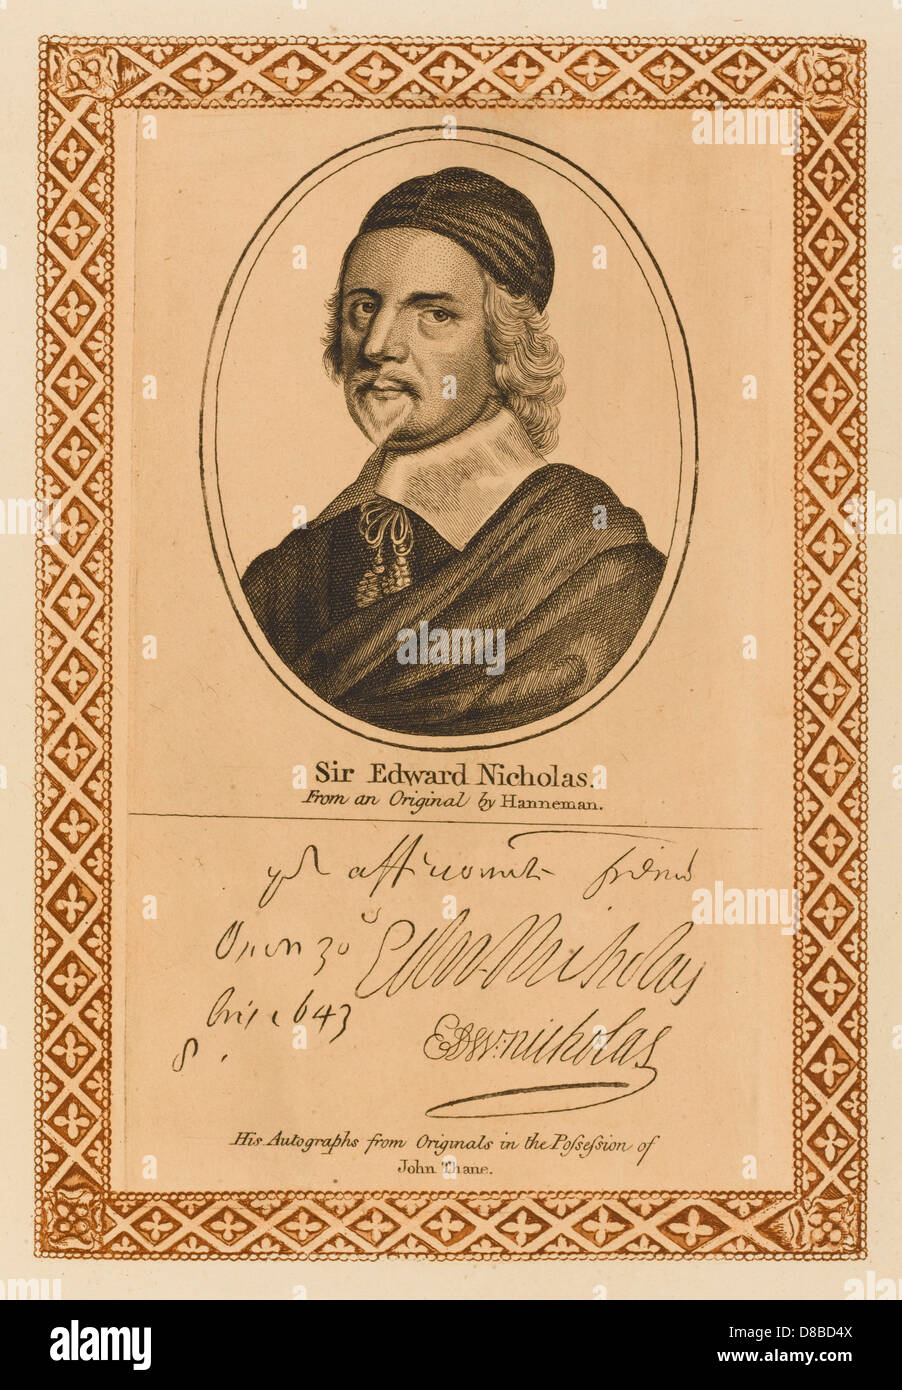 alamy
Sir Edward Nicholas.
From an Original by Hanneman.
friend
Oxon 30
1643
8
Edw. Nicholas
EDW: nicholas
His Autographs from Originals in the Possession of
John Thane.
alamy
Image ID: D8BD4X
www.alamy.com